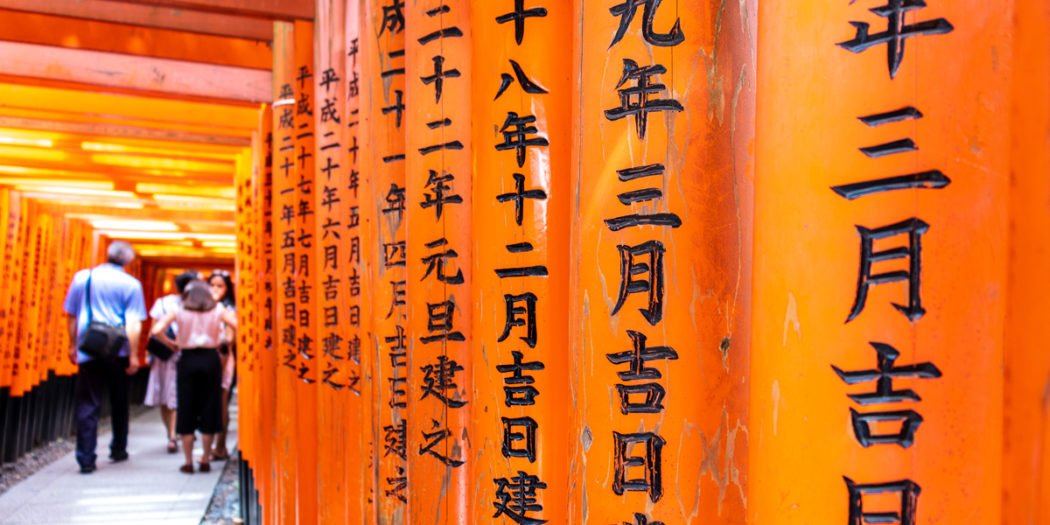 年三月吉日
九年三月吉日
十八年十二月吉日建
二十二年元旦建之
成二十一年四月吉日建之
平成二十年五月吉日建之
平成二十年六月吉日建之
平成二十七年七月吉日建之
平成二十一年五月吉日建之